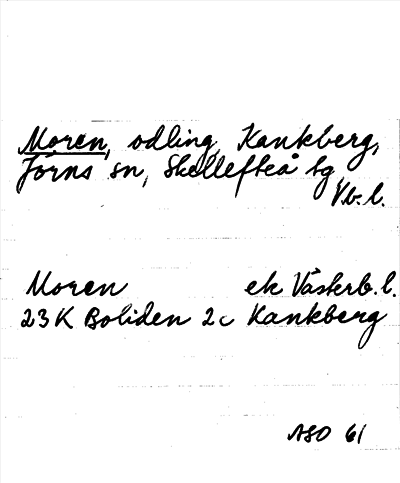 Moren, odling, Kankberg,
Jörns sn, Skellefteå tg
Vb. l.
Moren ek Västerb. l.
23K Boliden 2c Kankberg
ASO 61